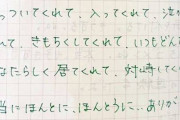 っついてくれて、入ってくれて、
れて、きもちくしてくれて、いつもど
なたらしく居てくれて、対峙してく
当にほんとに、ほんとうに‥ありが